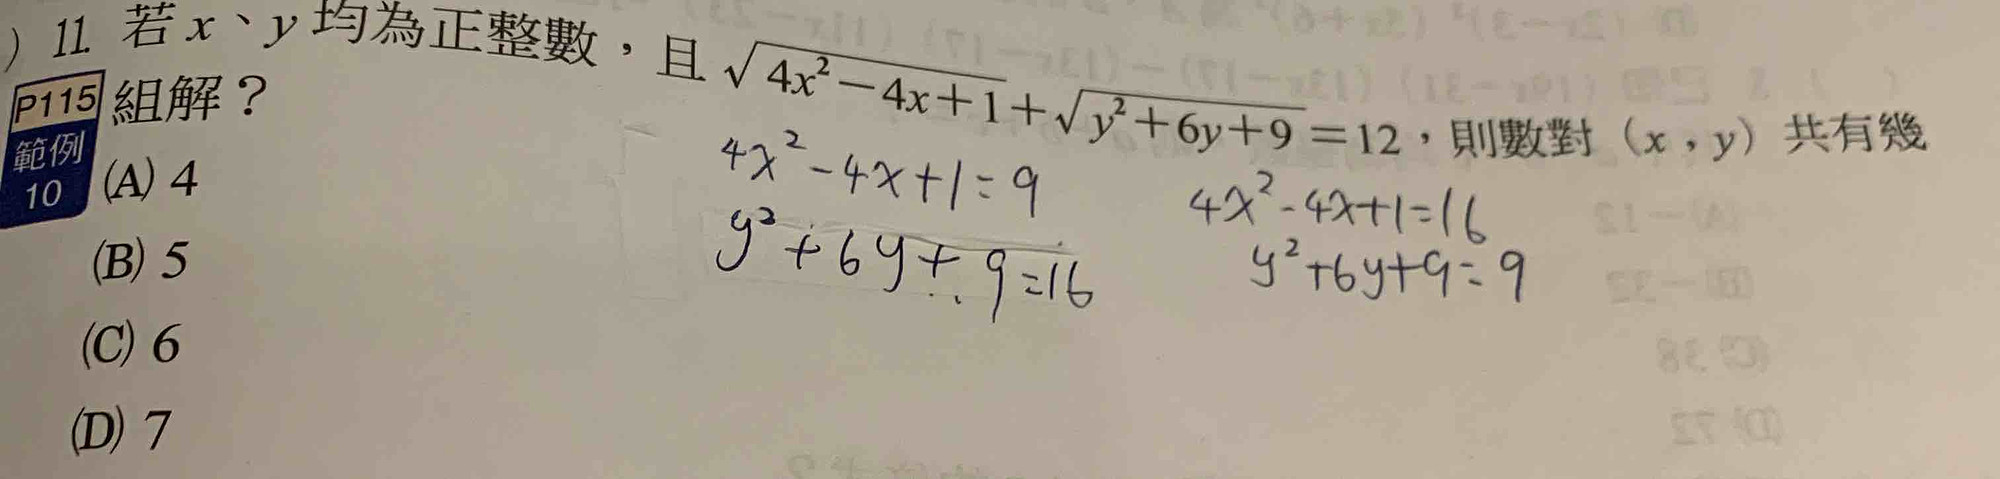 ) 11. 若 x、y 均為正整數，且 √4x²−4x+1+√y²+6y+9=12，則數對（x，y）共有幾
P115 組解？
範例
10
(A) 4
(B) 5
(C) 6
(D) 7
4x²-4x+1=9
y²+6y+9=16
4x²-4x+1=16
y²+6y+9=9